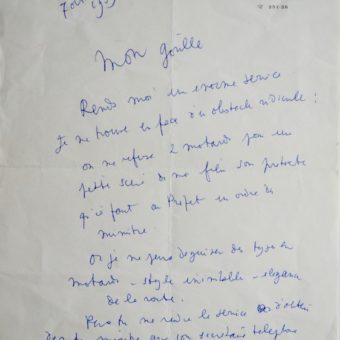 7
Mon
Rends moi un énorme service
Je me trouve en face d'un obstacle ridicule :
on me refuse 2 motards pour une
petite scène de me film son prétexte
qu'il faut au Préfet un ordre du
ministre.
Or je ne peux déguiser des types en
motards - style inimitable - élégance
de la route.
Peux tu me rendre le service d'obtenir
ministre que son secrétaire téléphone